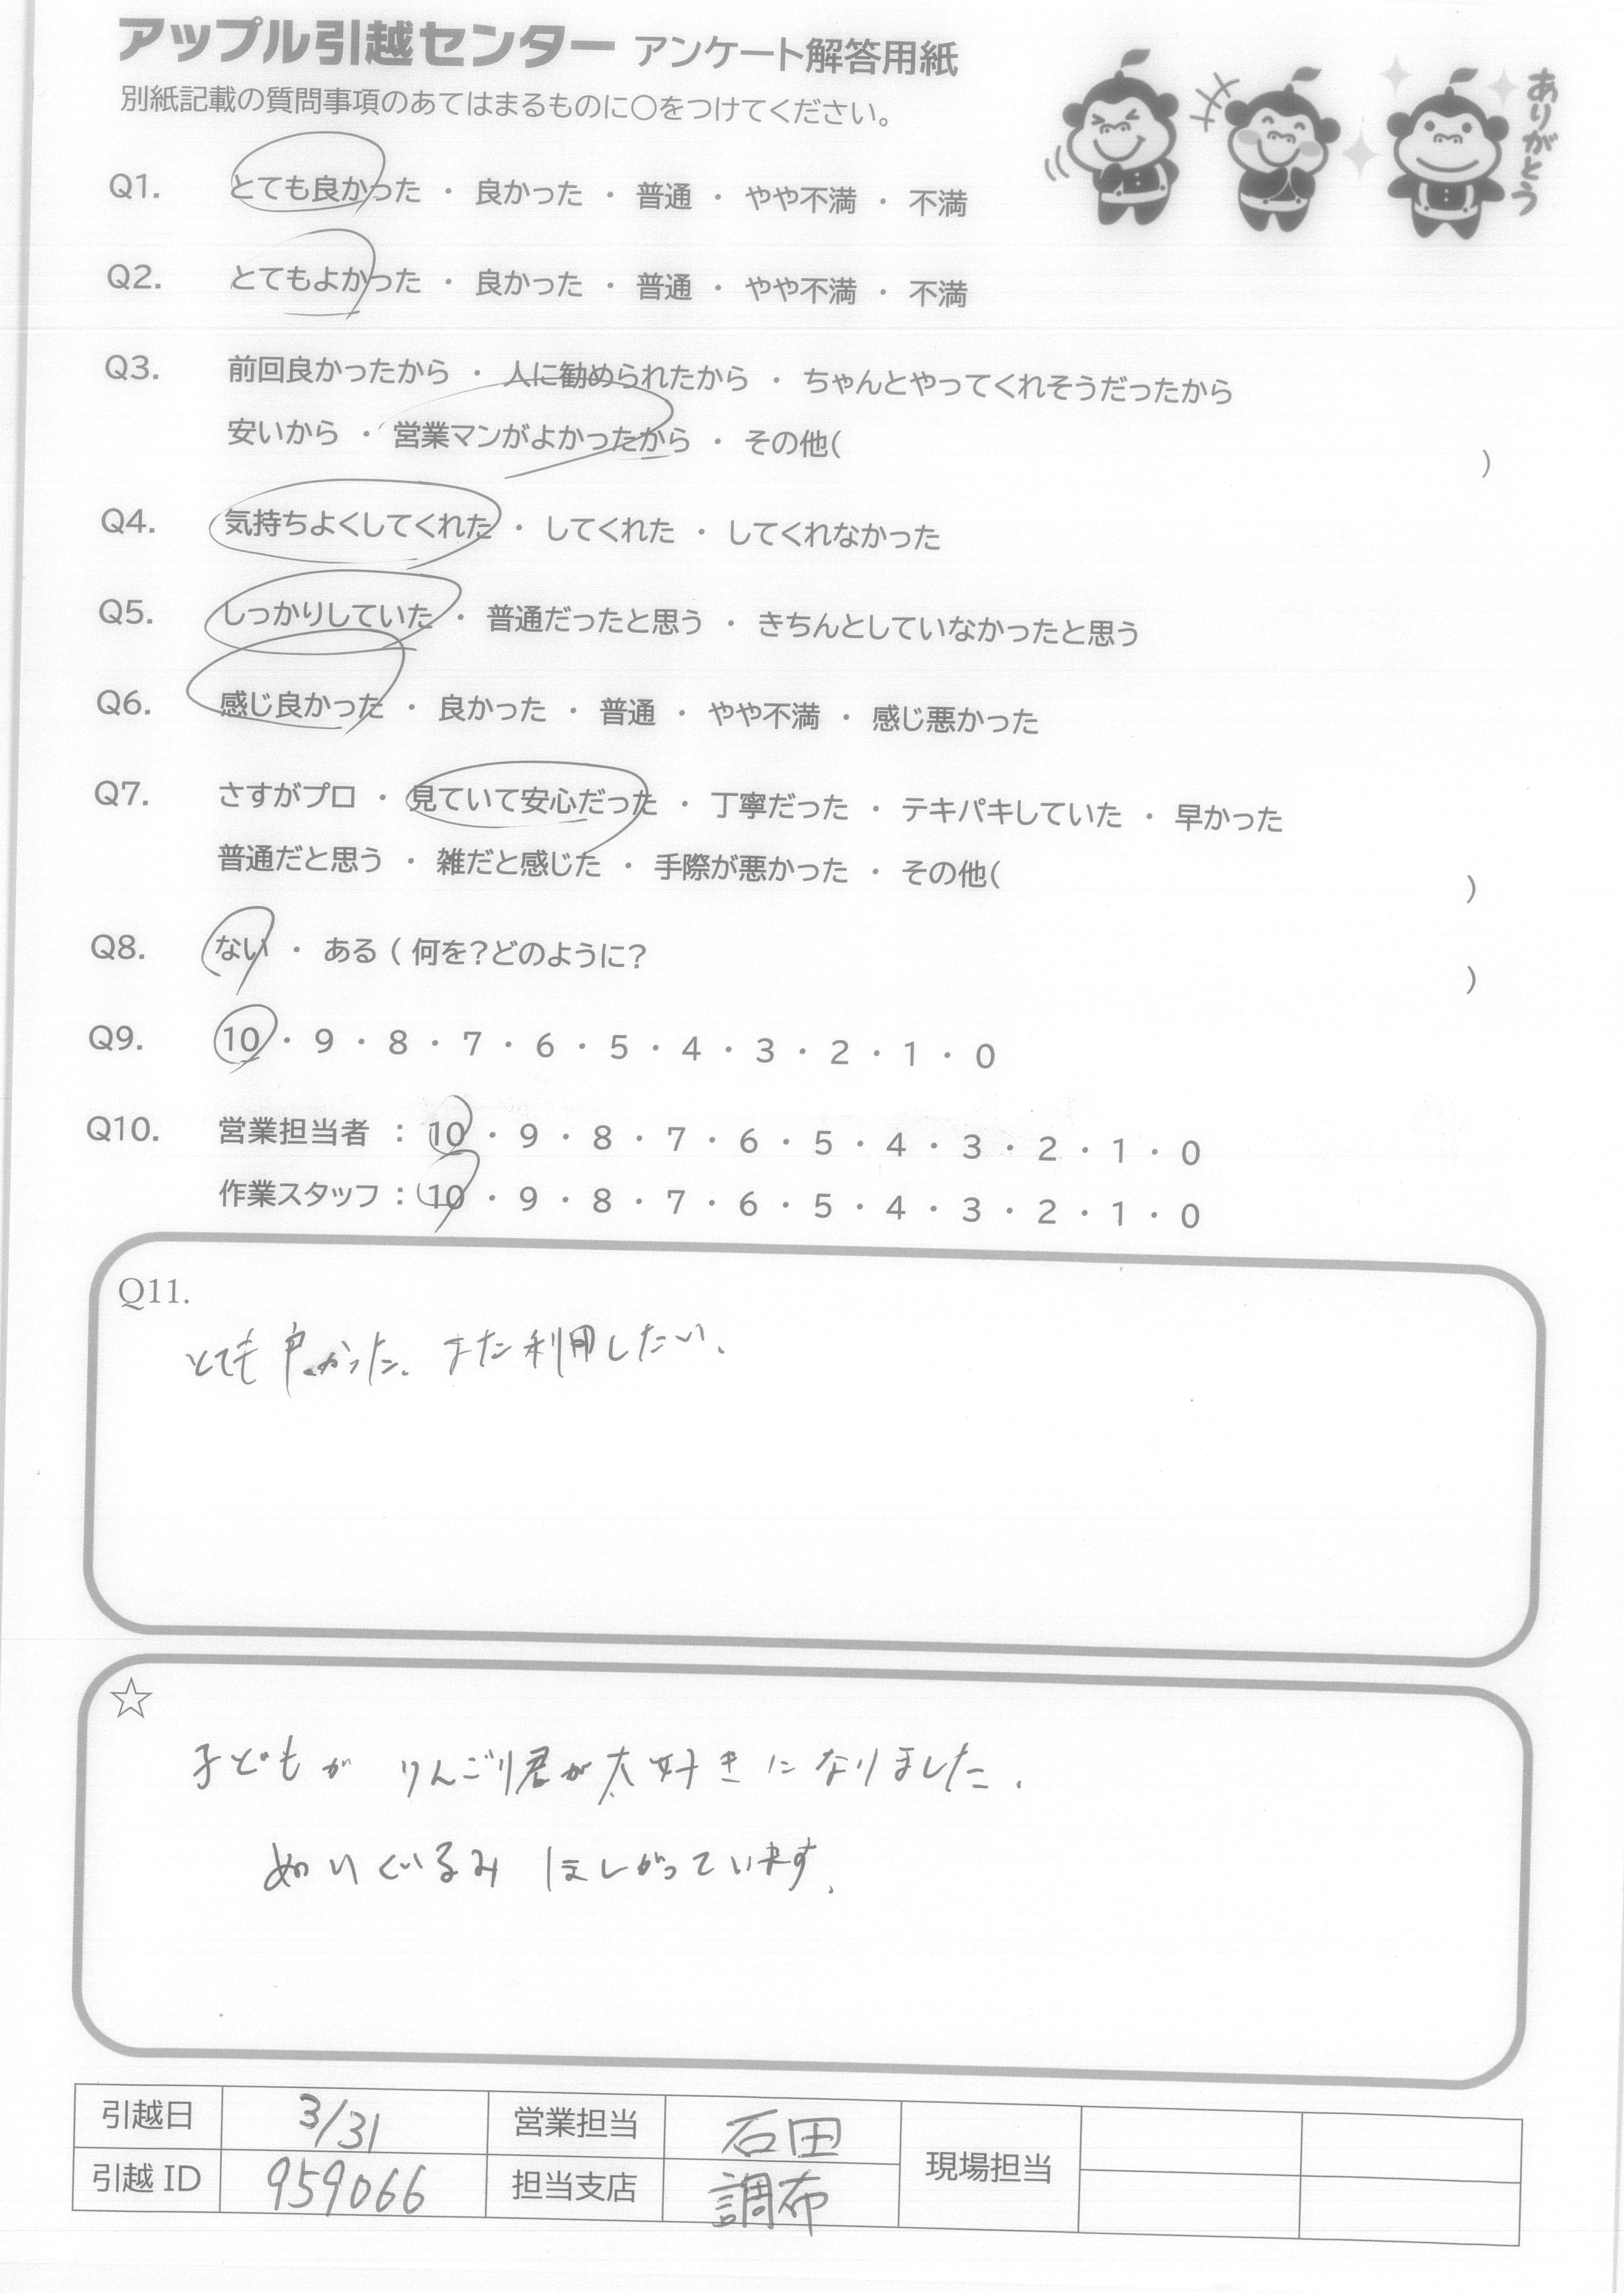 アップル引越センター アンケート解答用紙
別紙記載の質問事項のあてはまるものに○をつけてください。
ありがとう
Q1. とても良かった ・ 良かった ・ 普通 ・ やや不満 ・ 不満
Q2. とてもよかった ・ 良かった ・ 普通 ・ やや不満 ・ 不満
Q3. 前回良かったから ・ 人に勧められたから ・ ちゃんとやってくれそうだったから
安いから ・ 営業マンがよかったから ・ その他( )
Q4. 気持ちよくしてくれた ・ してくれた ・ してくれなかった
Q5. しっかりしていた ・ 普通だったと思う ・ きちんとしていなかったと思う
Q6. 感じ良かった ・ 良かった ・ 普通 ・ やや不満 ・ 感じ悪かった
Q7. さすがプロ ・ 見ていて安心だった ・ 丁寧だった ・ テキパキしていた ・ 早かった
普通だと思う ・ 雑だと感じた ・ 手際が悪かった ・ その他( )
Q8. ない ・ ある ( 何を?どのように? )
Q9. 10 ・ 9 ・ 8 ・ 7 ・ 6 ・ 5 ・ 4 ・ 3 ・ 2 ・ 1 ・ 0
Q10. 営業担当者 : 10 ・ 9 ・ 8 ・ 7 ・ 6 ・ 5 ・ 4 ・ 3 ・ 2 ・ 1 ・ 0
作業スタッフ : 10 ・ 9 ・ 8 ・ 7 ・ 6 ・ 5 ・ 4 ・ 3 ・ 2 ・ 1 ・ 0
Q11.
とても良かった。また利用したい。
☆
子どもが りんごり君が大好きになりました。
ぬいぐるみ ほしがっています。
引越日 3/31 営業担当 石田 現場担当
引越 ID 959066 担当支店 調布